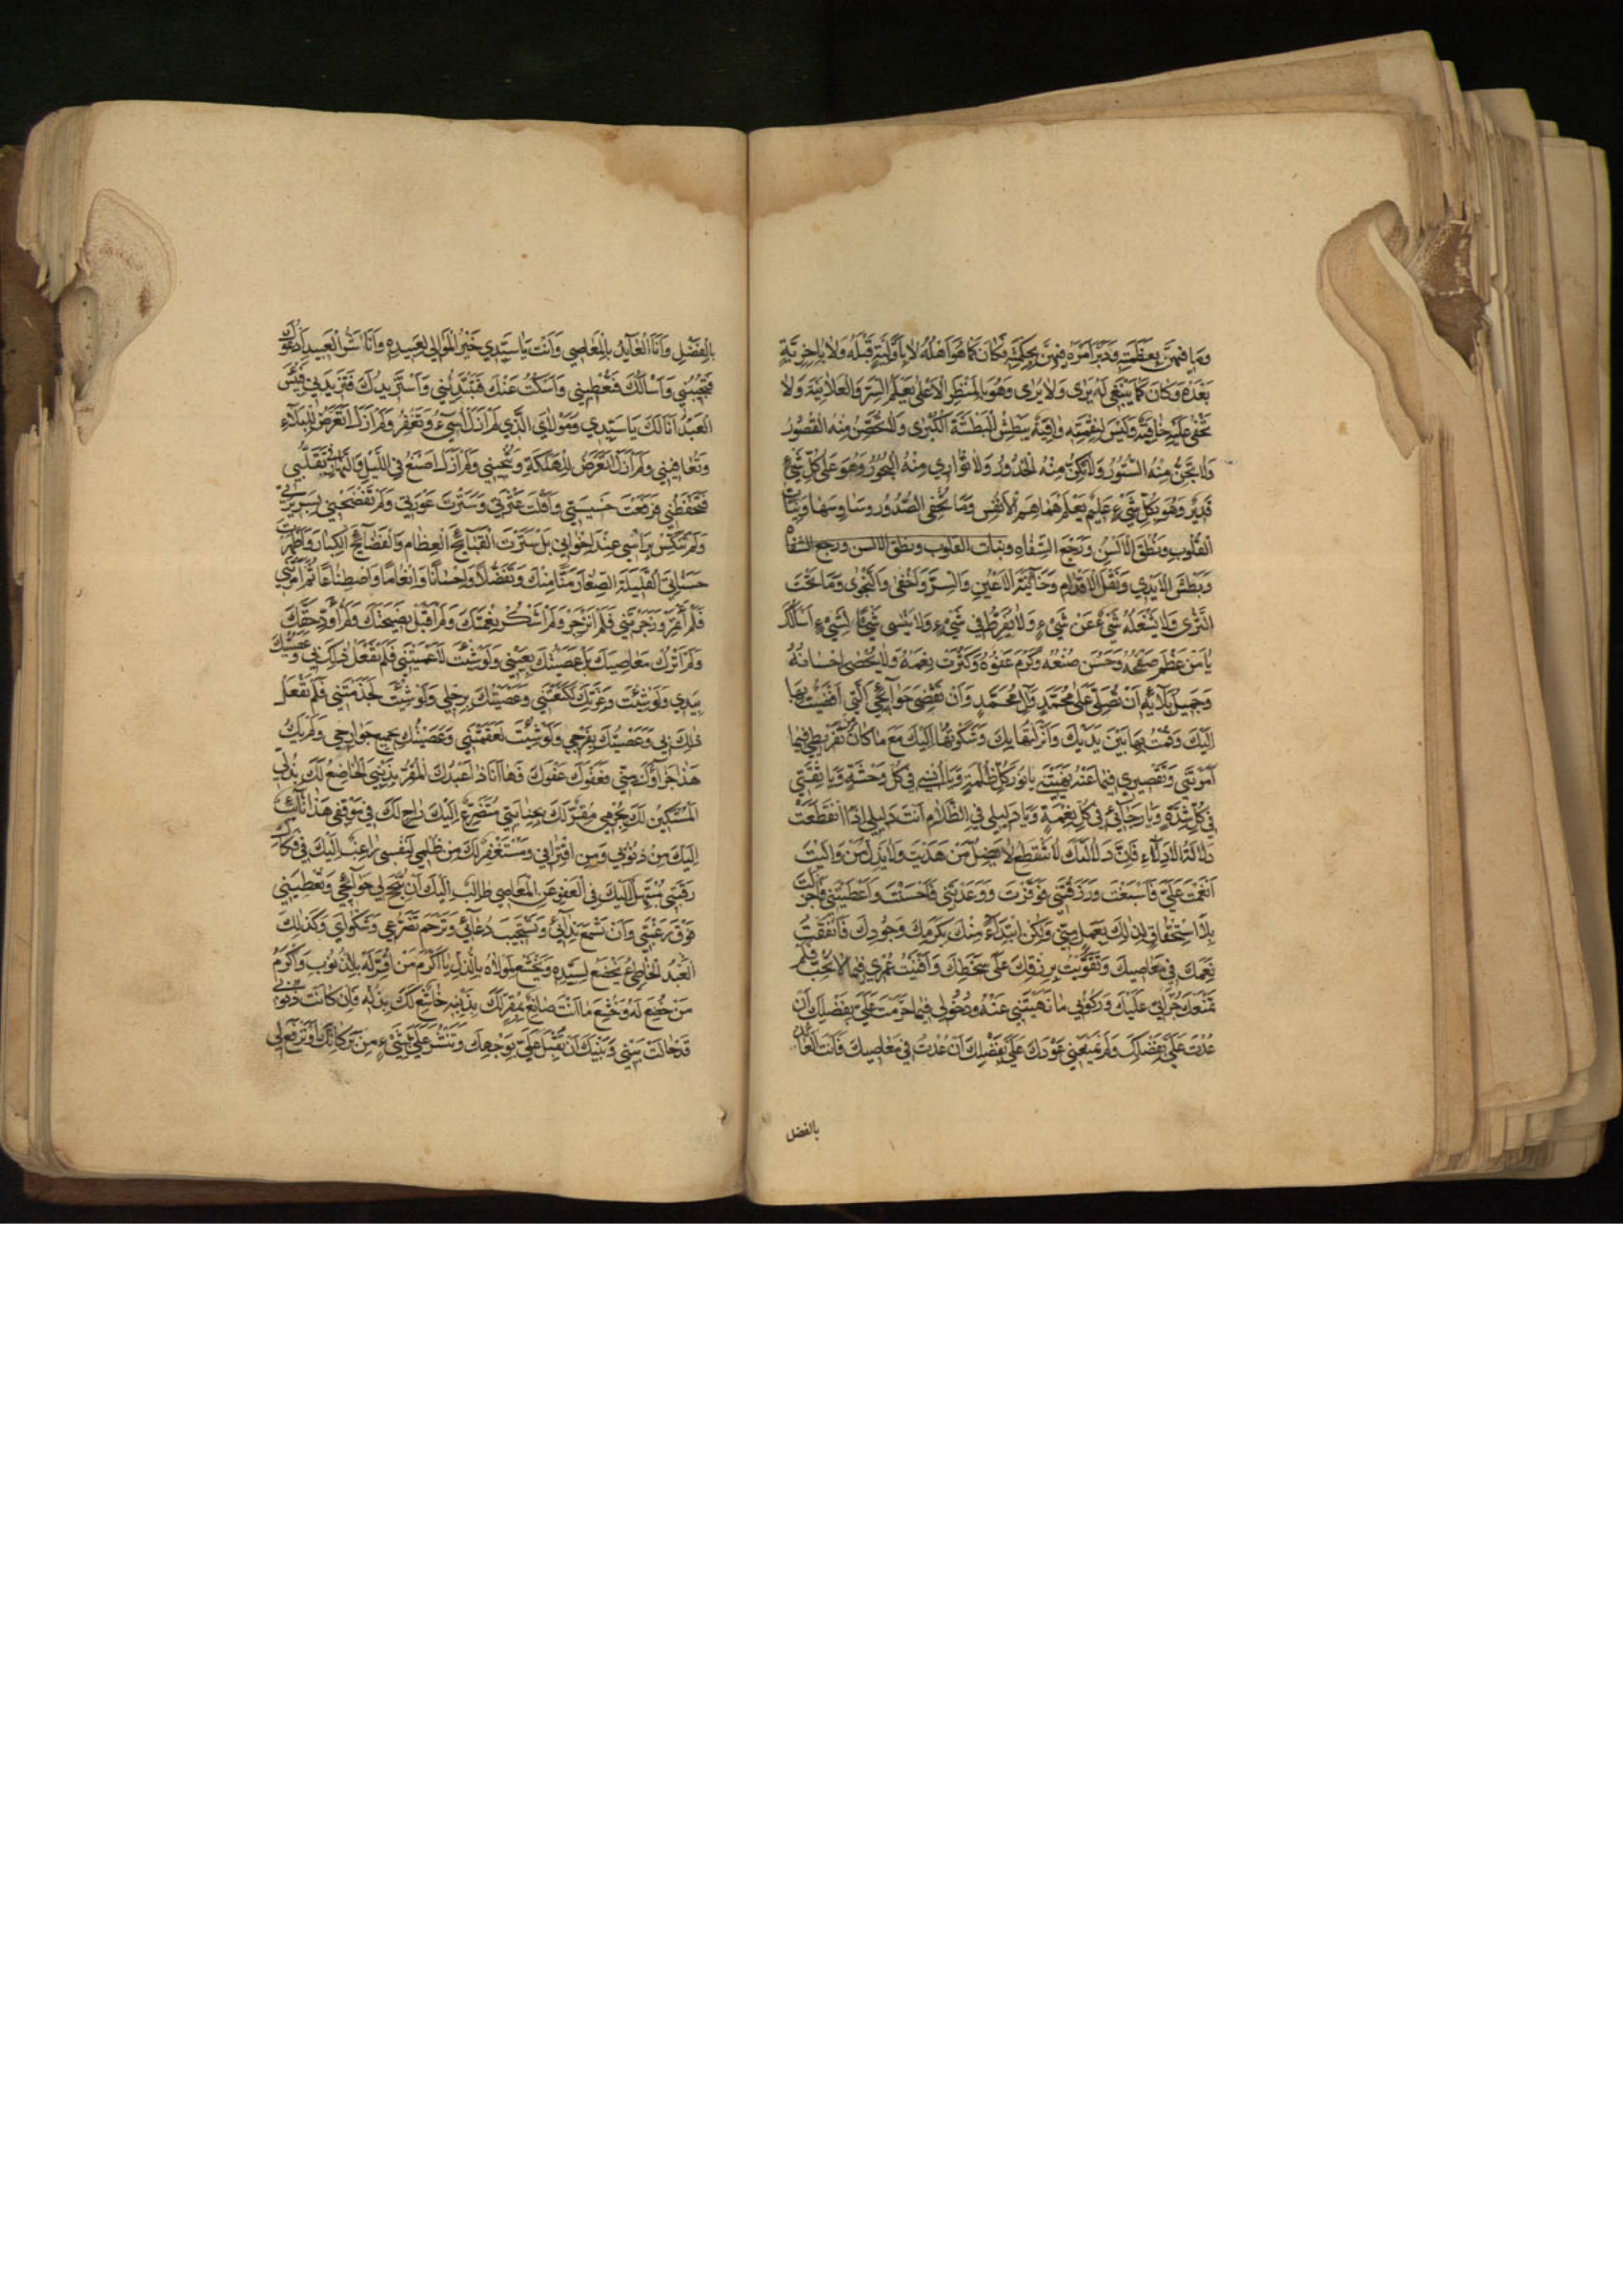 وَمَا فِيهِنَّ بِعَظَمَتِهِ وَدَبَّرَ اَمْرَهُ فِيهِنَّ بِحِكْمَتِهِ فَكَانَ كَمَا هُوَ اَهْلُهُ لَا بِاَوَّلِيَّةٍ قَبْلَهُ وَلَا بِاٰخِرِيَّةٍ
بَعْدَهُ وَكَانَ كَمَا يَنْبَغِي لَهُ يَرٰى وَلَا يُرٰى وَهُوَ بِالْمَنْظَرِ الْاَعْلٰى يَعْلَمُ السِّرَّ وَالْعَلَانِيَةَ وَلَا
تَخْفٰى عَلَيْهِ خَافِيَةٌ وَلَيْسَ لِنِقْمَتِهِ وَاقِيَةٌ يَبْطِشُ الْبَطْشَةَ الْكُبْرٰى وَلَا تُحَصِّنُ مِنْهُ الْقُصُورُ
وَلَا تَجُنُّ مِنْهُ السُّتُورُ وَلَا تُكِنُّ مِنْهُ الْخُدُورُ وَلَا تُوَارِي مِنْهُ الْبُحُورُ وَهُوَ عَلٰى كُلِّ شَيْءٍ
قَدِيرٌ وَهُوَ بِكُلِّ شَيْءٍ عَلِيمٌ يَعْلَمُ هَمَاهِمَ الْاَنْفُسِ وَمَا تُخْفِي الصُّدُورُ وَسَاوِسَهَا وَنِيَّاتِ
الْقُلُوبِ وَنُطْقَ الْاَلْسُنِ وَرَجْعَ الشِّفَاهِ ونيات القلوب ونطق الالسن ورجع الشفاه
وَبَطْشَ الْاَيْدِي وَنَقْلَ الْاَقْدَامِ وَخَائِنَةَ الْاَعْيُنِ وَالسِّرَّ وَاَخْفٰى وَالنَّجْوٰى وَمَا تَحْتَ
الثَّرٰى وَلَا يَشْغَلُهُ شَيْءٌ عَنْ شَيْءٍ وَلَا يُفَرِّطُ فِي شَيْءٍ وَلَا يَنْسٰى شَيْئًا لِشَيْءٍ اَسْاَلُكَ
يَا مَنْ عَظُمَ صَفْحُهُ وَحَسُنَ صُنْعُهُ وَكَرُمَ عَفْوُهُ وَكَثُرَتْ نِعَمُهُ وَلَا يُحْصٰى اِحْسَانُهُ
وَجَمِيلُ بَلَائِهِ اَنْ تُصَلِّيَ عَلٰى مُحَمَّدٍ وَاٰلِ مُحَمَّدٍ وَاَنْ تَقْضِيَ حَوَائِجِي الَّتِي اَفْضَيْتُ بِهَا
اِلَيْكَ وَقُمْتُ بِهَا بَيْنَ يَدَيْكَ وَاَنْزَلْتُهَا بِكَ وَشَكَوْتُهَا اِلَيْكَ مَعَ مَا كَانَ مِنْ تَفْرِيطِي فِيمَا
اَمَرْتَنِي وَتَقْصِيرِي فِيمَا عَنْهُ نَهَيْتَنِي يَا نُورِي فِي كُلِّ ظُلْمَةٍ وَيَا اُنْسِي فِي كُلِّ وَحْشَةٍ وَيَا ثِقَتِي
فِي كُلِّ شِدَّةٍ وَيَا رَجَائِي فِي كُلِّ نِعْمَةٍ وَيَا دَلِيلِي فِي الظَّلَامِ اَنْتَ دَلِيلِي اِذَا انْقَطَعَتْ
دَلَالَةُ الْاَدِلَّاءِ فَاِنَّ دَلَالَتَكَ لَا تَنْقَطِعُ لَا يَضِلُّ مَنْ هَدَيْتَ وَلَا يَذِلُّ مَنْ وَالَيْتَ
اَنْعَمْتَ عَلَيَّ فَاَسْبَغْتَ وَرَزَقْتَنِي فَوَفَّرْتَ وَوَعَدْتَنِي فَاَحْسَنْتَ وَاَعْطَيْتَنِي فَاَجْزَلْتَ
بِلَا اسْتِحْقَاقٍ لِذٰلِكَ بِعَمَلٍ مِنِّي وَلٰكِنِ ابْتِدَاءً مِنْكَ بِكَرَمِكَ وَجُودِكَ فَاَنْفَقْتُ
نِعَمَكَ فِي مَعَاصِيكَ وَتَقَوَّيْتُ بِرِزْقِكَ عَلٰى سَخَطِكَ وَاَفْنَيْتُ عُمْرِي فِيمَا لَا تُحِبُّ فَلَمْ
تَمْنَعْكَ جُرْاَتِي عَلَيْكَ وَرُكُوبِي مَا نَهَيْتَنِي عَنْهُ وَدُخُولِي فِيمَا حَرَّمْتَ عَلَيَّ بِفَضْلِكَ اَنْ
عُدْتَ عَلَيَّ بِفَضْلِكَ وَلَمْ يَمْنَعْنِي عَوْدُكَ عَلَيَّ بِفَضْلِكَ اَنْ عُدْتُ فِي مَعَاصِيكَ فَاَنْتَ الْعَائِدُ
بالفضل
بِالْفَضْلِ وَاَنَا الْعَائِدُ بِالْمَعَاصِي وَاَنْتَ يَا سَيِّدِي خَيْرُ الْمَوَالِي لِعَبِيدِهِ وَاَنَا شَرُّ الْعَبِيدِ اَدْعُوكَ
فَتُجِيبُنِي وَاَسْاَلُكَ فَتُعْطِينِي وَاَسْكُتُ عَنْكَ فَتَبْتَدِئُنِي وَاَسْتَزِيدُكَ فَتَزِيدُنِي فَبِئْسَ
الْعَبْدُ اَنَا لَكَ يَا سَيِّدِي وَمَوْلَايَ الَّذِي لَمْ اَزَلْ اُسِيءُ وَتَغْفِرُ وَلَمْ اَزَلْ اَتَعَرَّضُ لِلْبَلَاءِ
وَتُعَافِينِي وَلَمْ اَزَلْ اَتَعَرَّضُ لِلْهَلَكَةِ وَتُنْجِينِي وَلَمْ اَزَلْ اَصْنَعُ فِي اللَّيْلِ وَالنَّهَارِ فِي تَقَلُّبِي
فَتَحْفَظُنِي فَرَفَعْتَ خَسِيسَتِي وَاَقَلْتَ عَثْرَتِي وَسَتَرْتَ عَوْرَتِي وَلَمْ تَفْضَحْنِي بِسَرِيرَتِي
وَلَمْ تُنَكِّسْ بِرَاْسِي عِنْدَ اِخْوَانِي بَلْ سَتَرْتَ الْقَبَائِحَ الْعِظَامَ وَالْفَضَائِحَ الْكِبَارَ وَاَظْهَرْتَ
حَسَنَاتِيَ الْقَلِيلَةَ الصِّغَارَ مَنًّا مِنْكَ وَتَفَضُّلًا وَاِحْسَانًا وَاِنْعَامًا وَاصْطِنَاعًا ثُمَّ اَمَرْتَنِي
فَلَمْ اَئْتَمِرْ وَزَجَرْتَنِي فَلَمْ اَنْزَجِرْ وَلَمْ اَشْكُرْ نِعْمَتَكَ وَلَمْ اَقْبَلْ نَصِيحَتَكَ وَلَمْ اُؤَدِّ حَقَّكَ
وَلَمْ اَتْرُكْ مَعَاصِيَكَ بَلْ عَصَيْتُكَ بِعَيْنِي وَلَوْ شِئْتَ لَاَعْمَيْتَنِي فَلَمْ تَفْعَلْ ذٰلِكَ بِي وَعَصَيْتُكَ
بِيَدِي وَلَوْ شِئْتَ وَعِزَّتِكَ لَكَنَّعْتَنِي وَعَصَيْتُكَ بِرِجْلِي وَلَوْ شِئْتَ لَجَذَمْتَنِي فَلَمْ تَفْعَلْ
ذٰلِكَ بِي وَعَصَيْتُكَ بِفَرْجِي وَلَوْ شِئْتَ لَعَقَمْتَنِي وَعَصَيْتُكَ بِجَمِيعِ جَوَارِحِي وَلَمْ يَكُ
هٰذَا جَزَاؤُكَ مِنِّي فَعَفْوَكَ عَفْوَكَ فَهَا اَنَا ذَا عَبْدُكَ الْمُقِرُّ بِذَنْبِي الْخَاضِعُ لَكَ بِذُلِّي
الْمُسْتَكِينُ لَكَ بِجُرْمِي مُقِرٌّ لَكَ بِجِنَايَتِي مُتَضَرِّعٌ اِلَيْكَ رَاجٍ لَكَ فِي مَوْقِفِي هٰذَا تَائِبٌ
اِلَيْكَ مِنْ ذُنُوبِي وَمِنِ اقْتِرَافِي وَمُسْتَغْفِرٌ لَكَ مِنْ ظُلْمِي لِنَفْسِي رَاغِبٌ اِلَيْكَ فِي فَكَاكِ
رَقَبَتِي مُبْتَهِلٌ اِلَيْكَ فِي الْعَفْوِ عَنِ الْمَعَاصِي طَالِبٌ اِلَيْكَ اَنْ تُنْجِحَ لِي حَوَائِجِي وَتُعْطِيَنِي
فَوْقَ رَغْبَتِي وَاَنْ تَسْمَعَ نِدَائِي وَتَسْتَجِيبَ دُعَائِي وَتَرْحَمَ تَضَرُّعِي وَشَكْوَايَ وَكَذٰلِكَ
الْعَبْدُ الْخَاطِئُ يَخْضَعُ لِسَيِّدِهِ وَيَخْشَعُ لِمَوْلَاهُ بِالذُّلِّ يَا اَكْرَمَ مَنْ اُقِرَّ لَهُ بِالذُّنُوبِ وَاَكْرَمَ
مَنْ خُضِعَ لَهُ وَخُشِعَ مَا اَنْتَ صَانِعٌ بِمُقِرٍّ لَكَ بِذَنْبِهِ خَاشِعٍ لَكَ بِذُلِّهِ فَاِنْ كَانَتْ ذُنُوبِي
قَدْ حَالَتْ بَيْنِي وَبَيْنَكَ اَنْ تُقْبِلَ عَلَيَّ بِوَجْهِكَ وَتَنْشُرَ عَلَيَّ شَيْءٍ مِنْ بَرَكَاتِكَ اَوْ تَرْفَعَ لِي